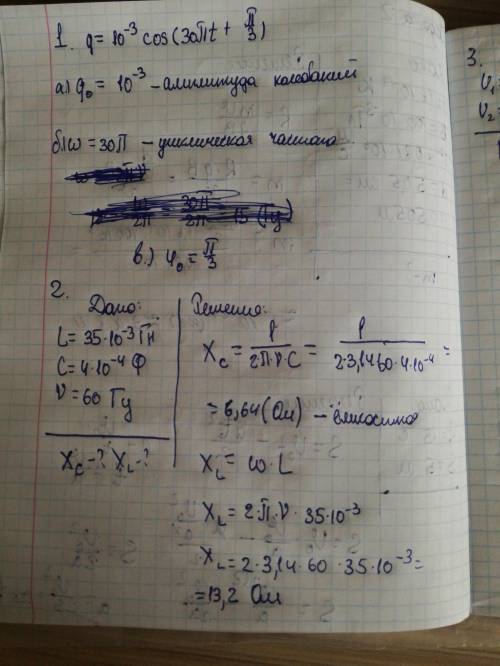 1. q = 10⁻³ cos(30πt + π/3)
а) q₀ = 10⁻³ – амплитуда колебаний
б) ω = 30π – циклическая частота
в.) φ₀ = π/3
2.
Дано:
L = 35·10⁻³ Гн
C = 4·10⁻⁴ Ф
ν = 60 Гц
X_C - ? X_L - ?
Решение:
X_C = 1/(2·π·ν·C) = 1/(2·3,14·60·4·10⁻⁴) =
= 6,64 (Ом) –
X_L = ω·L
X_L = 2·π·ν · 35·10⁻³
X_L = 2·3,14·60·35·10⁻³ =
= 13,2 Ом
3.
υ₁ =
υ₂ =